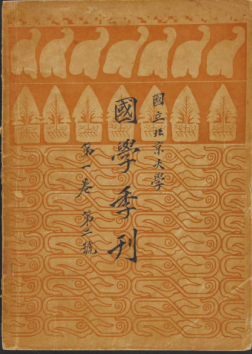 國立北京大學
國學季刊
第一卷 第二號